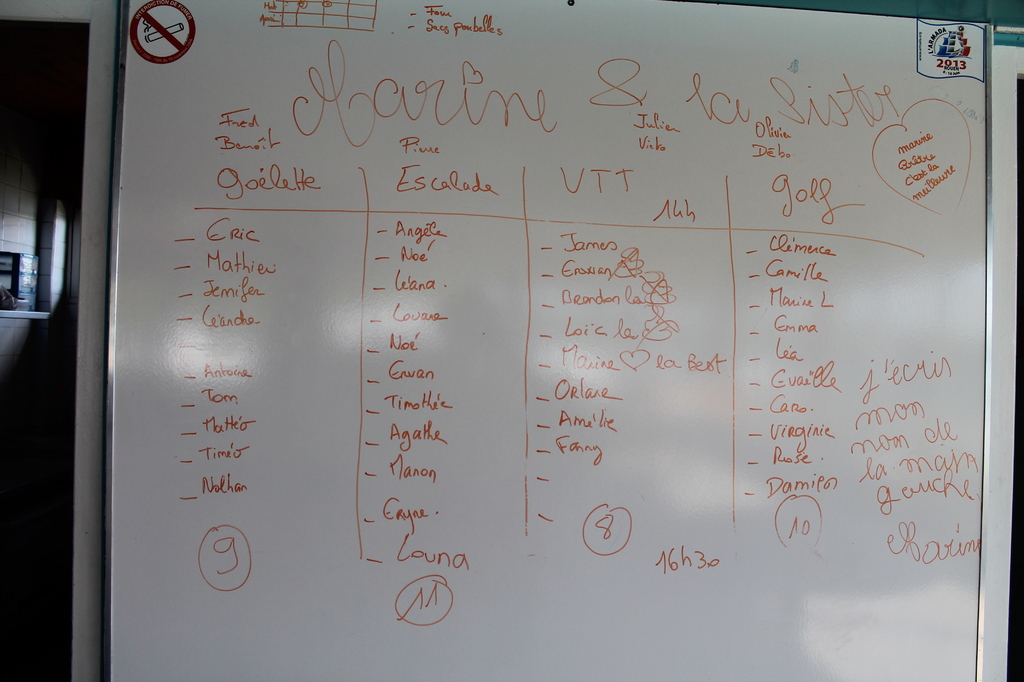 INTERDICTION DE FUMER
- Sacs poubelles
L'ARMADA
2013
ROUEN
Marine & la Sister
Fred
Benoît
Pierre
Julien
Olivier
Débo
marine
c'est la
meilleure
Goélette
Escalade
VTT
14h
Golf
- Eric
- Mathieu
- Jenifer
- Léandre
- Antoine
- Tom
- Mattéo
- Timéo
- Nathan
9
- Angèle
- Noé
- Léana.
- Louane
- Noé
- Erwan
- Timothée
- Agathe
- Manon
- Eryne.
- Louna
11
- James
- Erwan
- Brandon la
- Loïc la
- Marine ♡ la Best
- Orlane
- Amélie
- Fanny
-
-
8
16h30
- Clémence
- Camille
- Marine L
- Emma
- Léa
- Evaëlle
- Caro.
- Virginie
- Rose.
- Damien
10
j'écris
mon
nom de
la main
gauche.
Marine